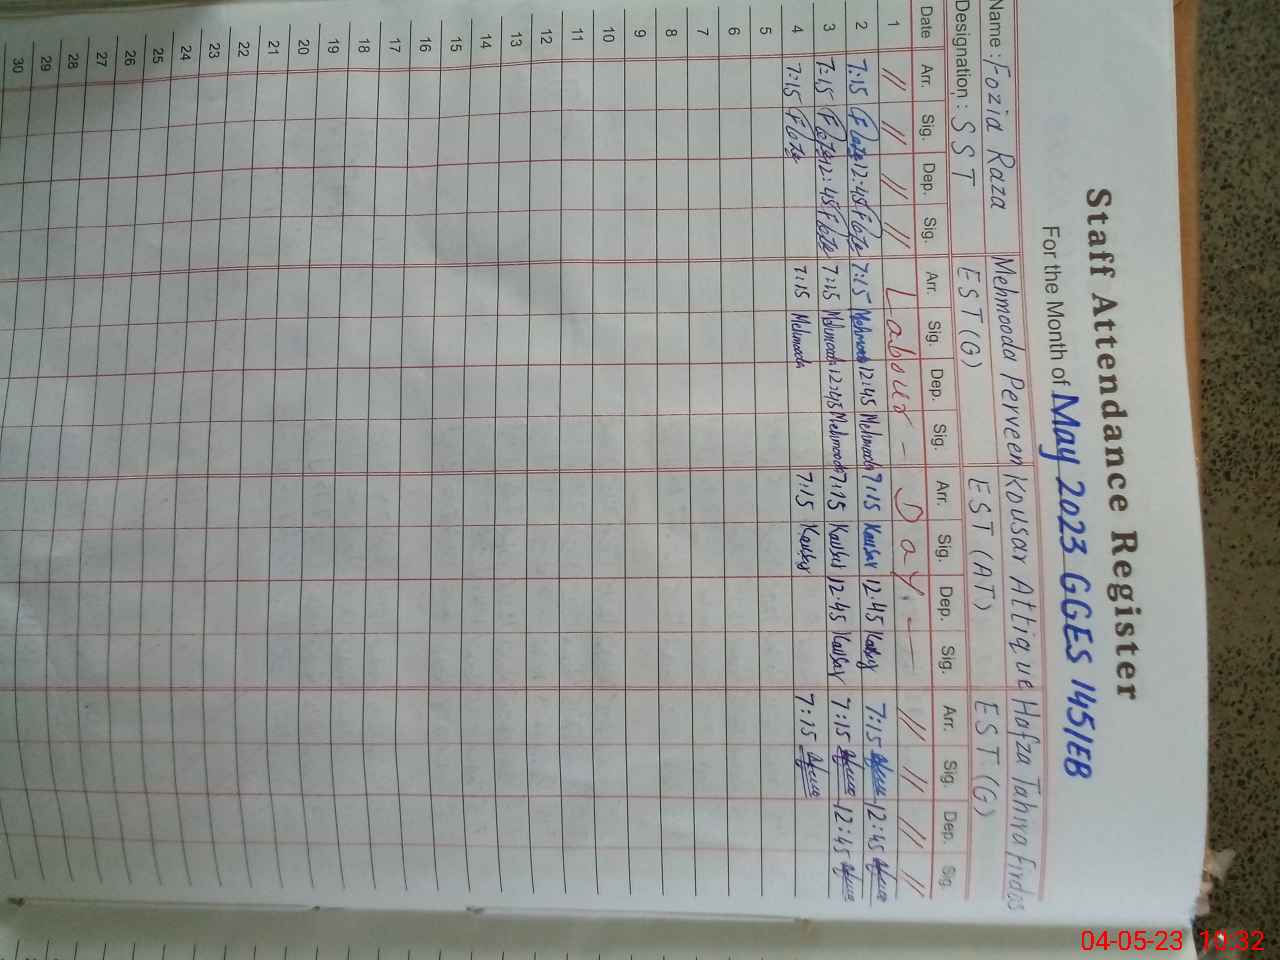 Staff Attendance Register
For the Month of May 2023 GGES 145/EB
Name : Fozia Raza Mehmooda Perveen Kousar Attique Hafza Tahira Firdos
Designation : SST EST (G) EST (AT) EST (G)
Date Arr. Sig. Dep. Sig. Arr. Sig. Dep. Sig. Arr. Sig. Dep. Sig. Arr. Sig. Dep. Sig.
1 // // // // Labour - Day - // // // //
2 7:15 12:45 7:15 Mehmooda 12:45 Mehmooda 7:15 Kausar 12:45 Kausar 7:15 12:45
3 7:15 12:45 7:15 Mehmooda 12:45 Mehmooda 7:15 Kausar 12:45 Kausar 7:15 12:45
4 7:15 7:15 Mehmooda 7:15 Kausar 7:15
5
6
7
8
9
10
11
12
13
14
15
16
17
18
19
20
21
22
23
24
25
26
27
28
29
30
04-05-23 10:32